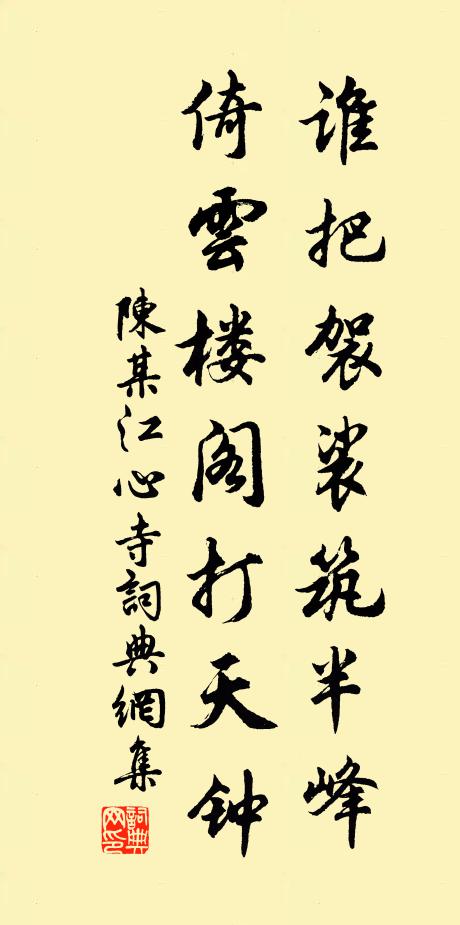 谁把袈裟筑半峰
倚雲楼阁打天钟
陳某江心寺詞典網集
詞典网印